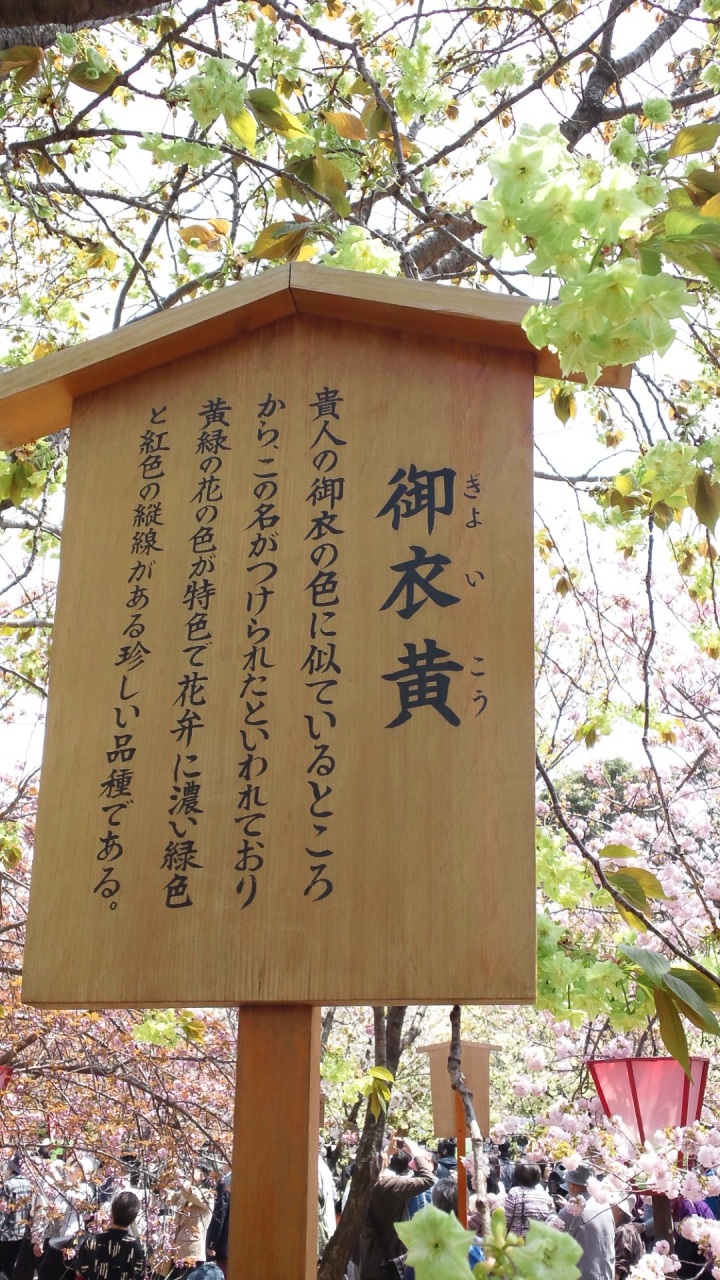 御衣黄
ぎょいこう
貴人の御衣の色に似ているところ
から、この名がつけられたといわれており
黄緑の花の色が特色で花弁に濃い緑色
と紅色の縦線がある珍しい品種である。